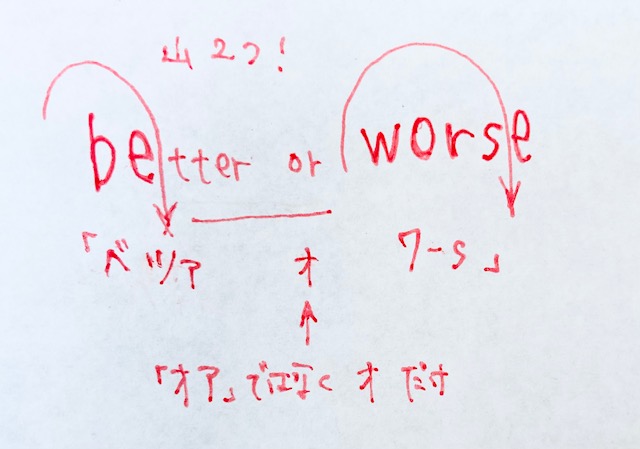 山2つ!
better or worse
「ベツァ オ ワーs」
「オア」では無く オ だけ